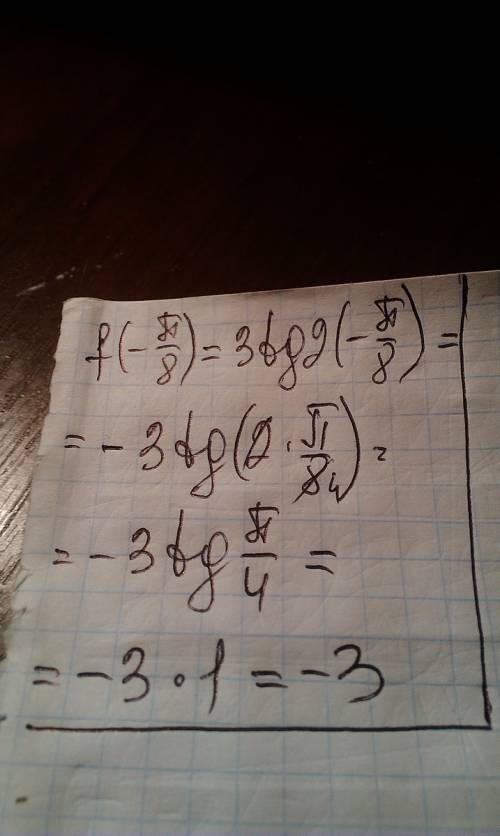 f(-π/8) = 3tg2(-π/8) =
= -3tg(2·π/84) =
= -3tg π/4 =
= -3·1 = -3